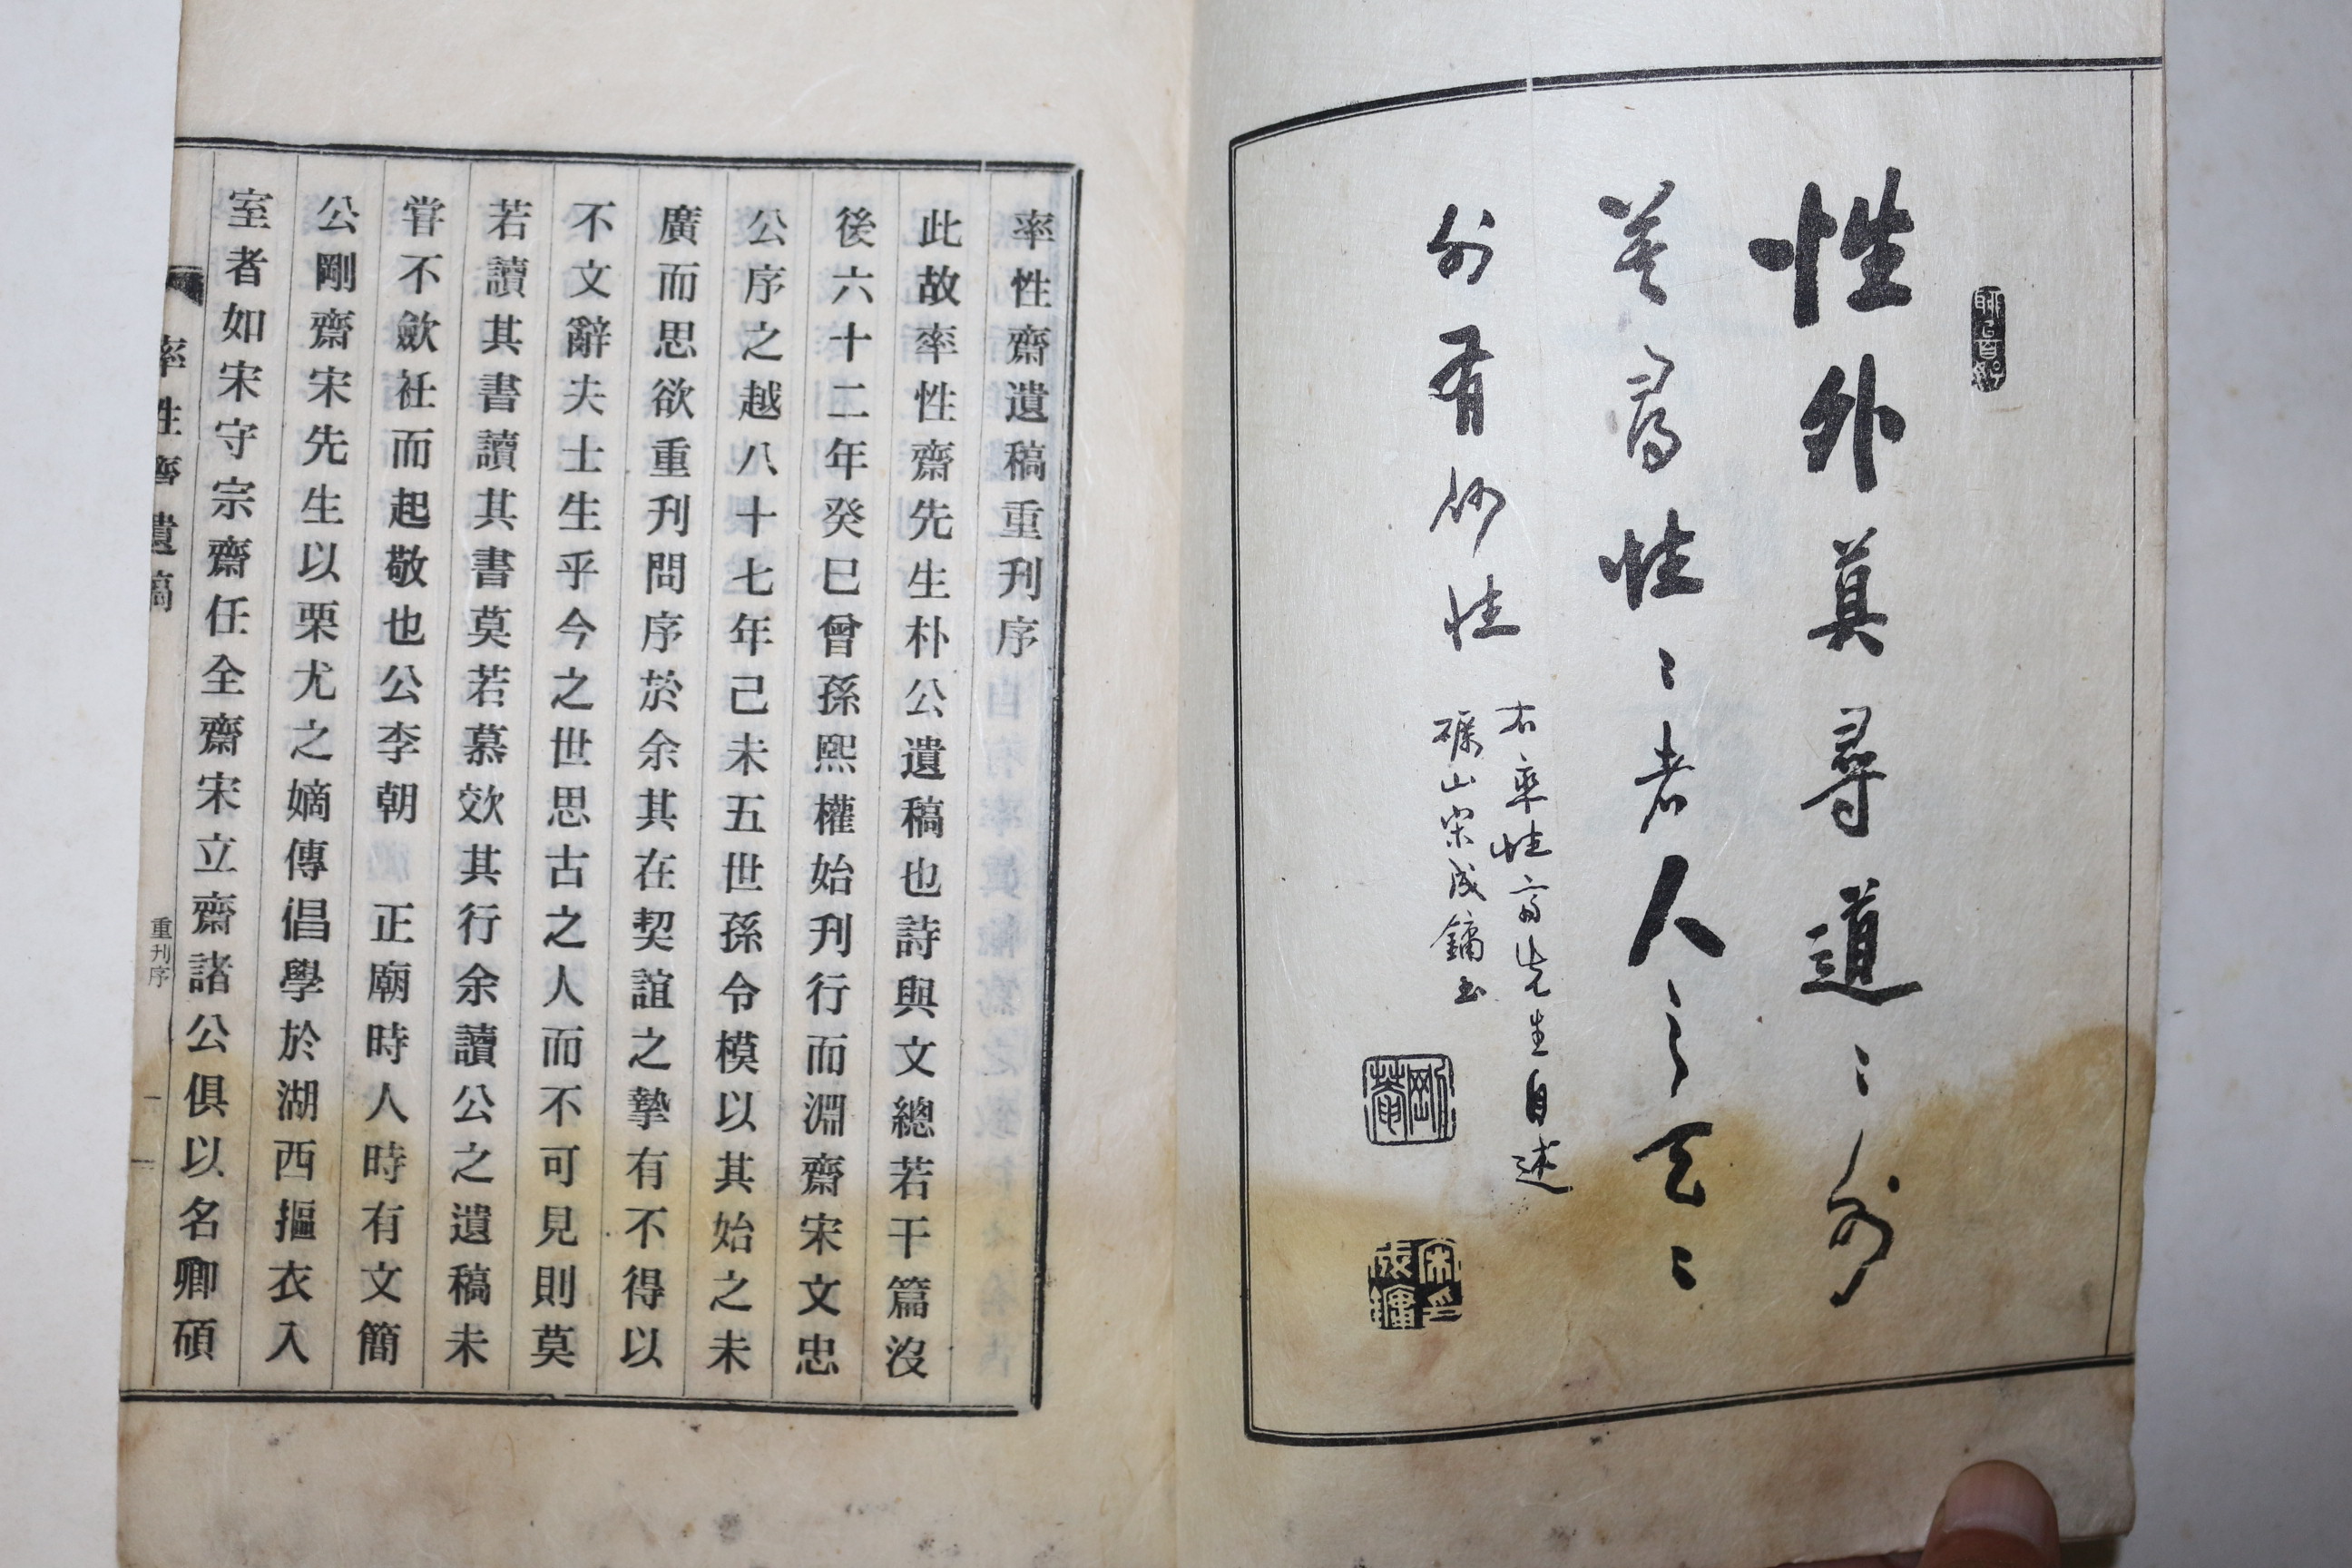 性外莫尋道〻外
莫尋性〻者人之天〻
外有何性
右率性齋先生自述
礪山宋成鏞書
剛菴
宋成鏞印
率性齋遺稿重刊序
此故率性齋先生朴公遺稿也詩與文總若干篇沒
後六十二年癸巳曾孫熙權始刊行而淵齋宋文忠
公序之越八十七年己未五世孫令模以其始之未
廣而思欲重刊問序於余其在契誼之摯有不得以
不文辭夫士生乎今之世思古之人而不可見則莫
若讀其書讀其書莫若慕效其行余讀公之遺稿未
甞不斂衽而起敬也公李朝 正廟時人時有文簡
公剛齋宋先生以栗尤之嫡傳倡學於湖西摳衣入
室者如宋守宗齋任全齋宋立齋諸公俱以名卿碩
率性齋遺稿 重刊序 一